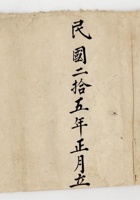 民國二拾五年正月立